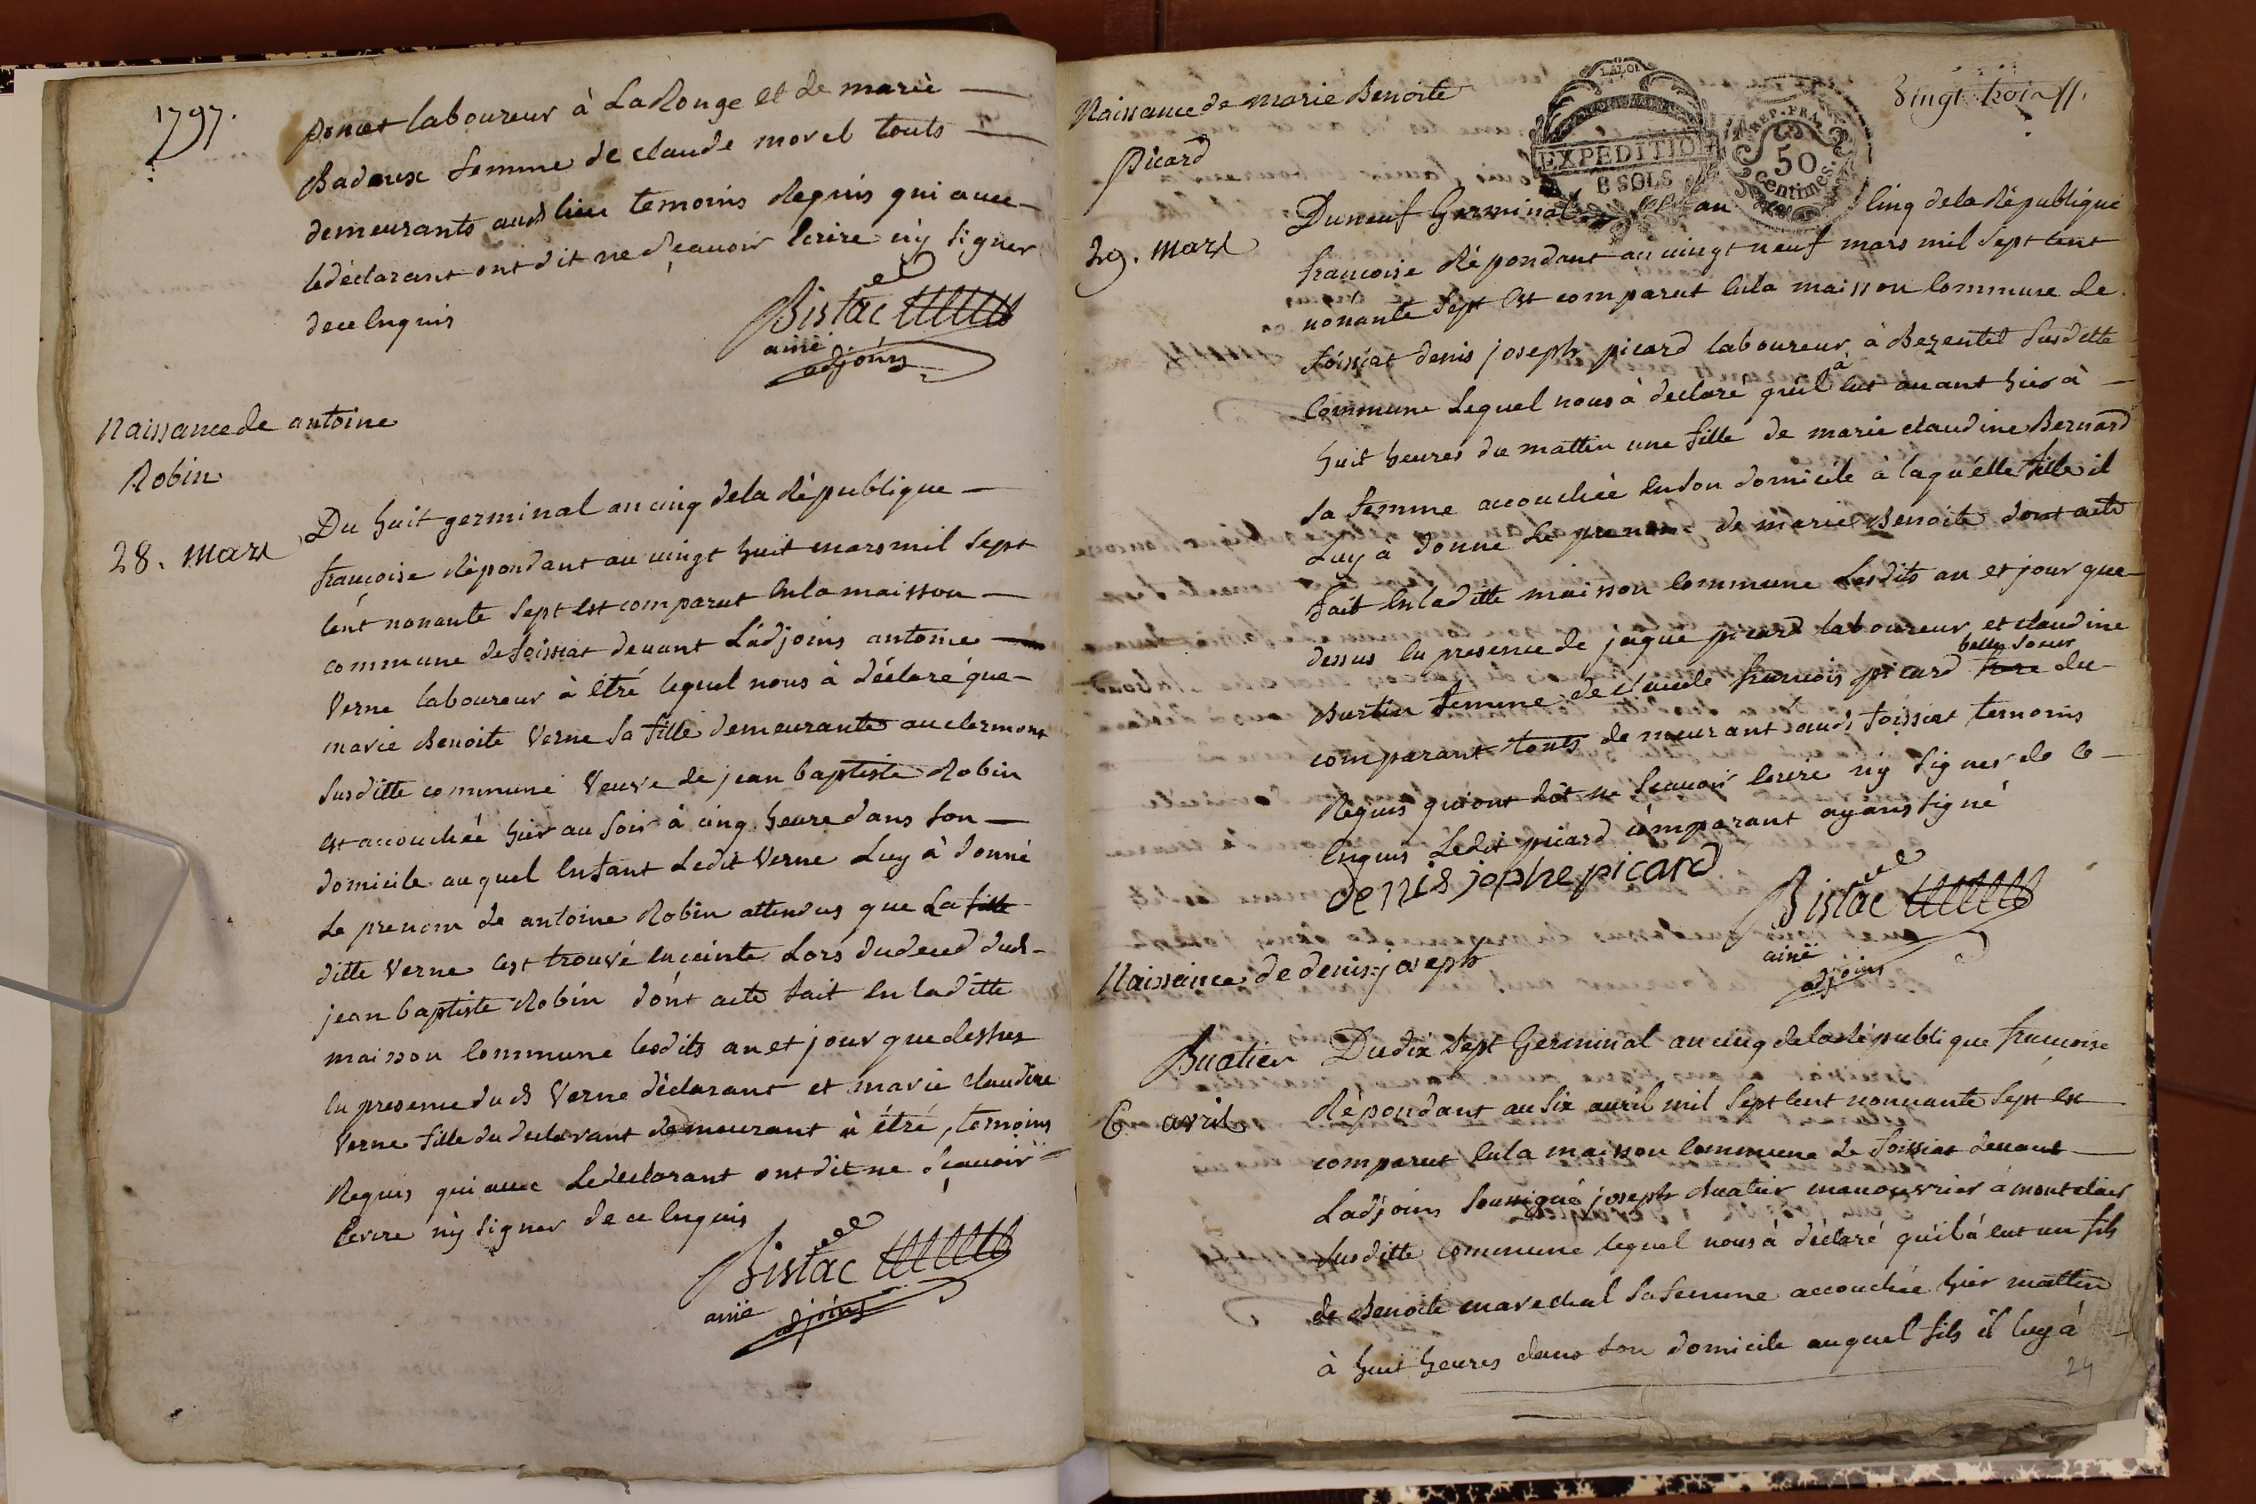 1797.
poncet laboureur à La Rouge et de marie
Badoux femme de claude morel touts
demeurants auds lieu temoins Requis qui avec
le déclarant ont dit ne sçavoir Ecrire n'y signer
de ce Enquis
Bistac
ainé
adjoins
Naissance de antoine
Robin
28. Mars
Du huit germinal an cinq de la République
françoise Répondant au vingt huit mars mil sept
cent nonante sept est comparut En la maisson
commune de foissiat devant L'adjoins antoine
Verne laboureur à étré lequel nous à déclaré que
marie Benoite Verne sa fille demeurante au clermont
susditte commune Veuve de jean baptiste Robin
est accouchéé hier au soir à cinq heure dans son
domicile auquel Enfant Ledit Verne Luy à donné
Le prenom de antoine Robin attendus que La fille
ditte Verne cest trouvé Enceinte Lors du deced duds
jean baptiste Robin dont acte fait En laditte
maisson Commune lesdits an et jour que dessus
En presence duds Verne déclarant et marie claudine
Verne fille du declarant demeurant à étré, temoins
Requis qui avec Le declarant ont dit ne sçavoir
Ecrire n'y signer de ce Enquis
Bistac
ainé adjoins
Naissance de marie Benoite
Picard
29. Mars
LA LOI
EXPEDITION
8 SOLS
REP. FRA.
50
centimes.
Vingt trois
Du neuf Germinal an Cinq de la République
françoise Répondant au vingt neuf mars mil sept cent
nonante sept Est comparut En la maisson Commune de
foissiat denis joseph picard laboureur à Bezentet susditte
Commune Lequel nous à declaré qu'il à Eut avant hier à
huit heures du mattin une fille de marie claudine Bernard
sa femme accouchéé En son domicile à laquélle fille il
Luy à donné Le prenom de marie Benoite dont acte
fait En laditte maisson Commune Lesdits an et jour que
dessus En presence de jaque picard laboureur et claudine
belle soeur
Burtin femme de claude francois picard frere du
comparant touts demeurant auds foissiat temoins
Requis qui ont dit ne scavoir Ecrire n'y signer de ce
Enquis Ledit picard comparant ayans signé
denis jophe picard
Bistac
ainé
adjoins
Naissance de denis joseph
Buatier
6 avril
Du dix sept Germinal an cinq de la République francoise
Répondant au six avril mil sept cent nonnante sept est
comparut En la maisson Commune de foissiat devant
L'adjoins soussigné joseph Buatier manouvrier à montclair
susditte commune lequel nous à déclaré qu'il à Eut un fils
de Benoite marechal sa femme accouchée hier mattin
à huit heures dans son domicile auquel fils il luy à
24